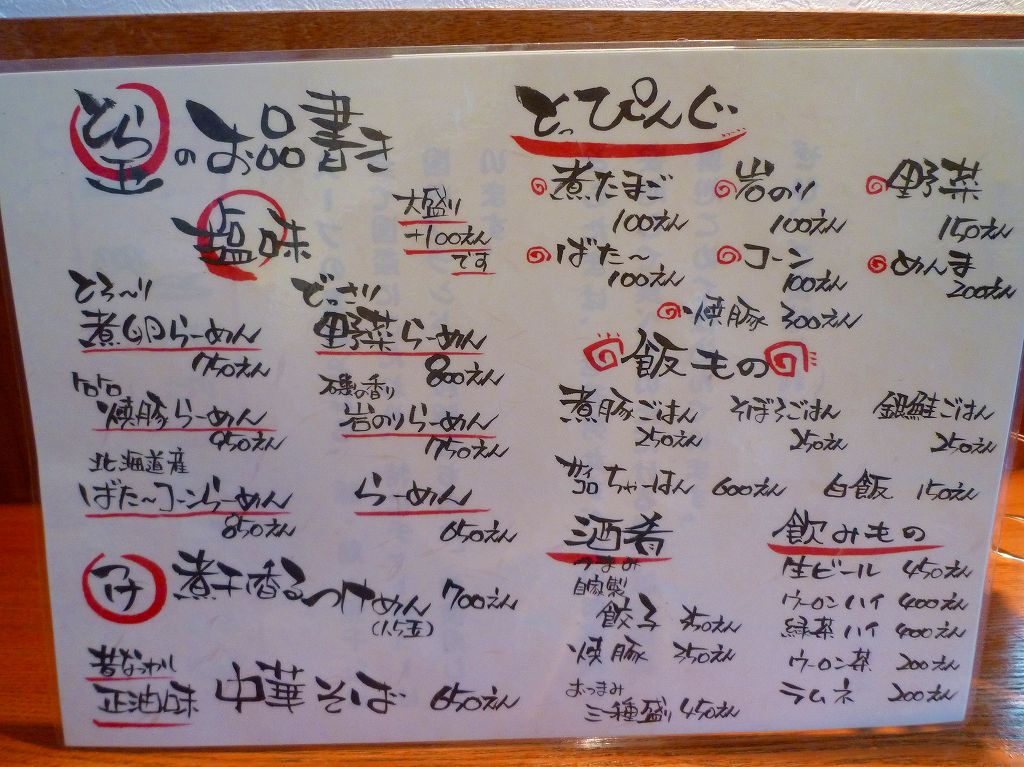 とら玉のお品書き
塩味
大盛り
+100えん
です
とろ〜り
煮卵らーめん
750えん
どっさり
野菜らーめん
800えん
トロトロ
焼豚らーめん
950えん
磯の香り
岩のりらーめん
750えん
北海道産
ばた〜コーンらーめん
850えん
らーめん
650えん
つけ
煮干香るつけめん 700えん
(1.5玉)
昔なつかし
正油味 中華そば 650えん
とっぴんぐ
煮たまご
100えん
岩のり
100えん
野菜
150えん
ばた〜
100えん
コーン
100えん
めんま
200えん
焼豚 300えん
飯もの
煮豚ごはん
250えん
そぼろごはん
250えん
銀鮭ごはん
250えん
サイコロ ちゃーはん 600えん
白飯 150えん
酒肴
つまみ
自家製
餃子 350えん
焼豚 350えん
おつまみ
三種盛り 450えん
飲みもの
生ビール 450えん
ウーロンハイ 400えん
緑茶ハイ 400えん
ウーロン茶 200えん
ラムネ 200えん